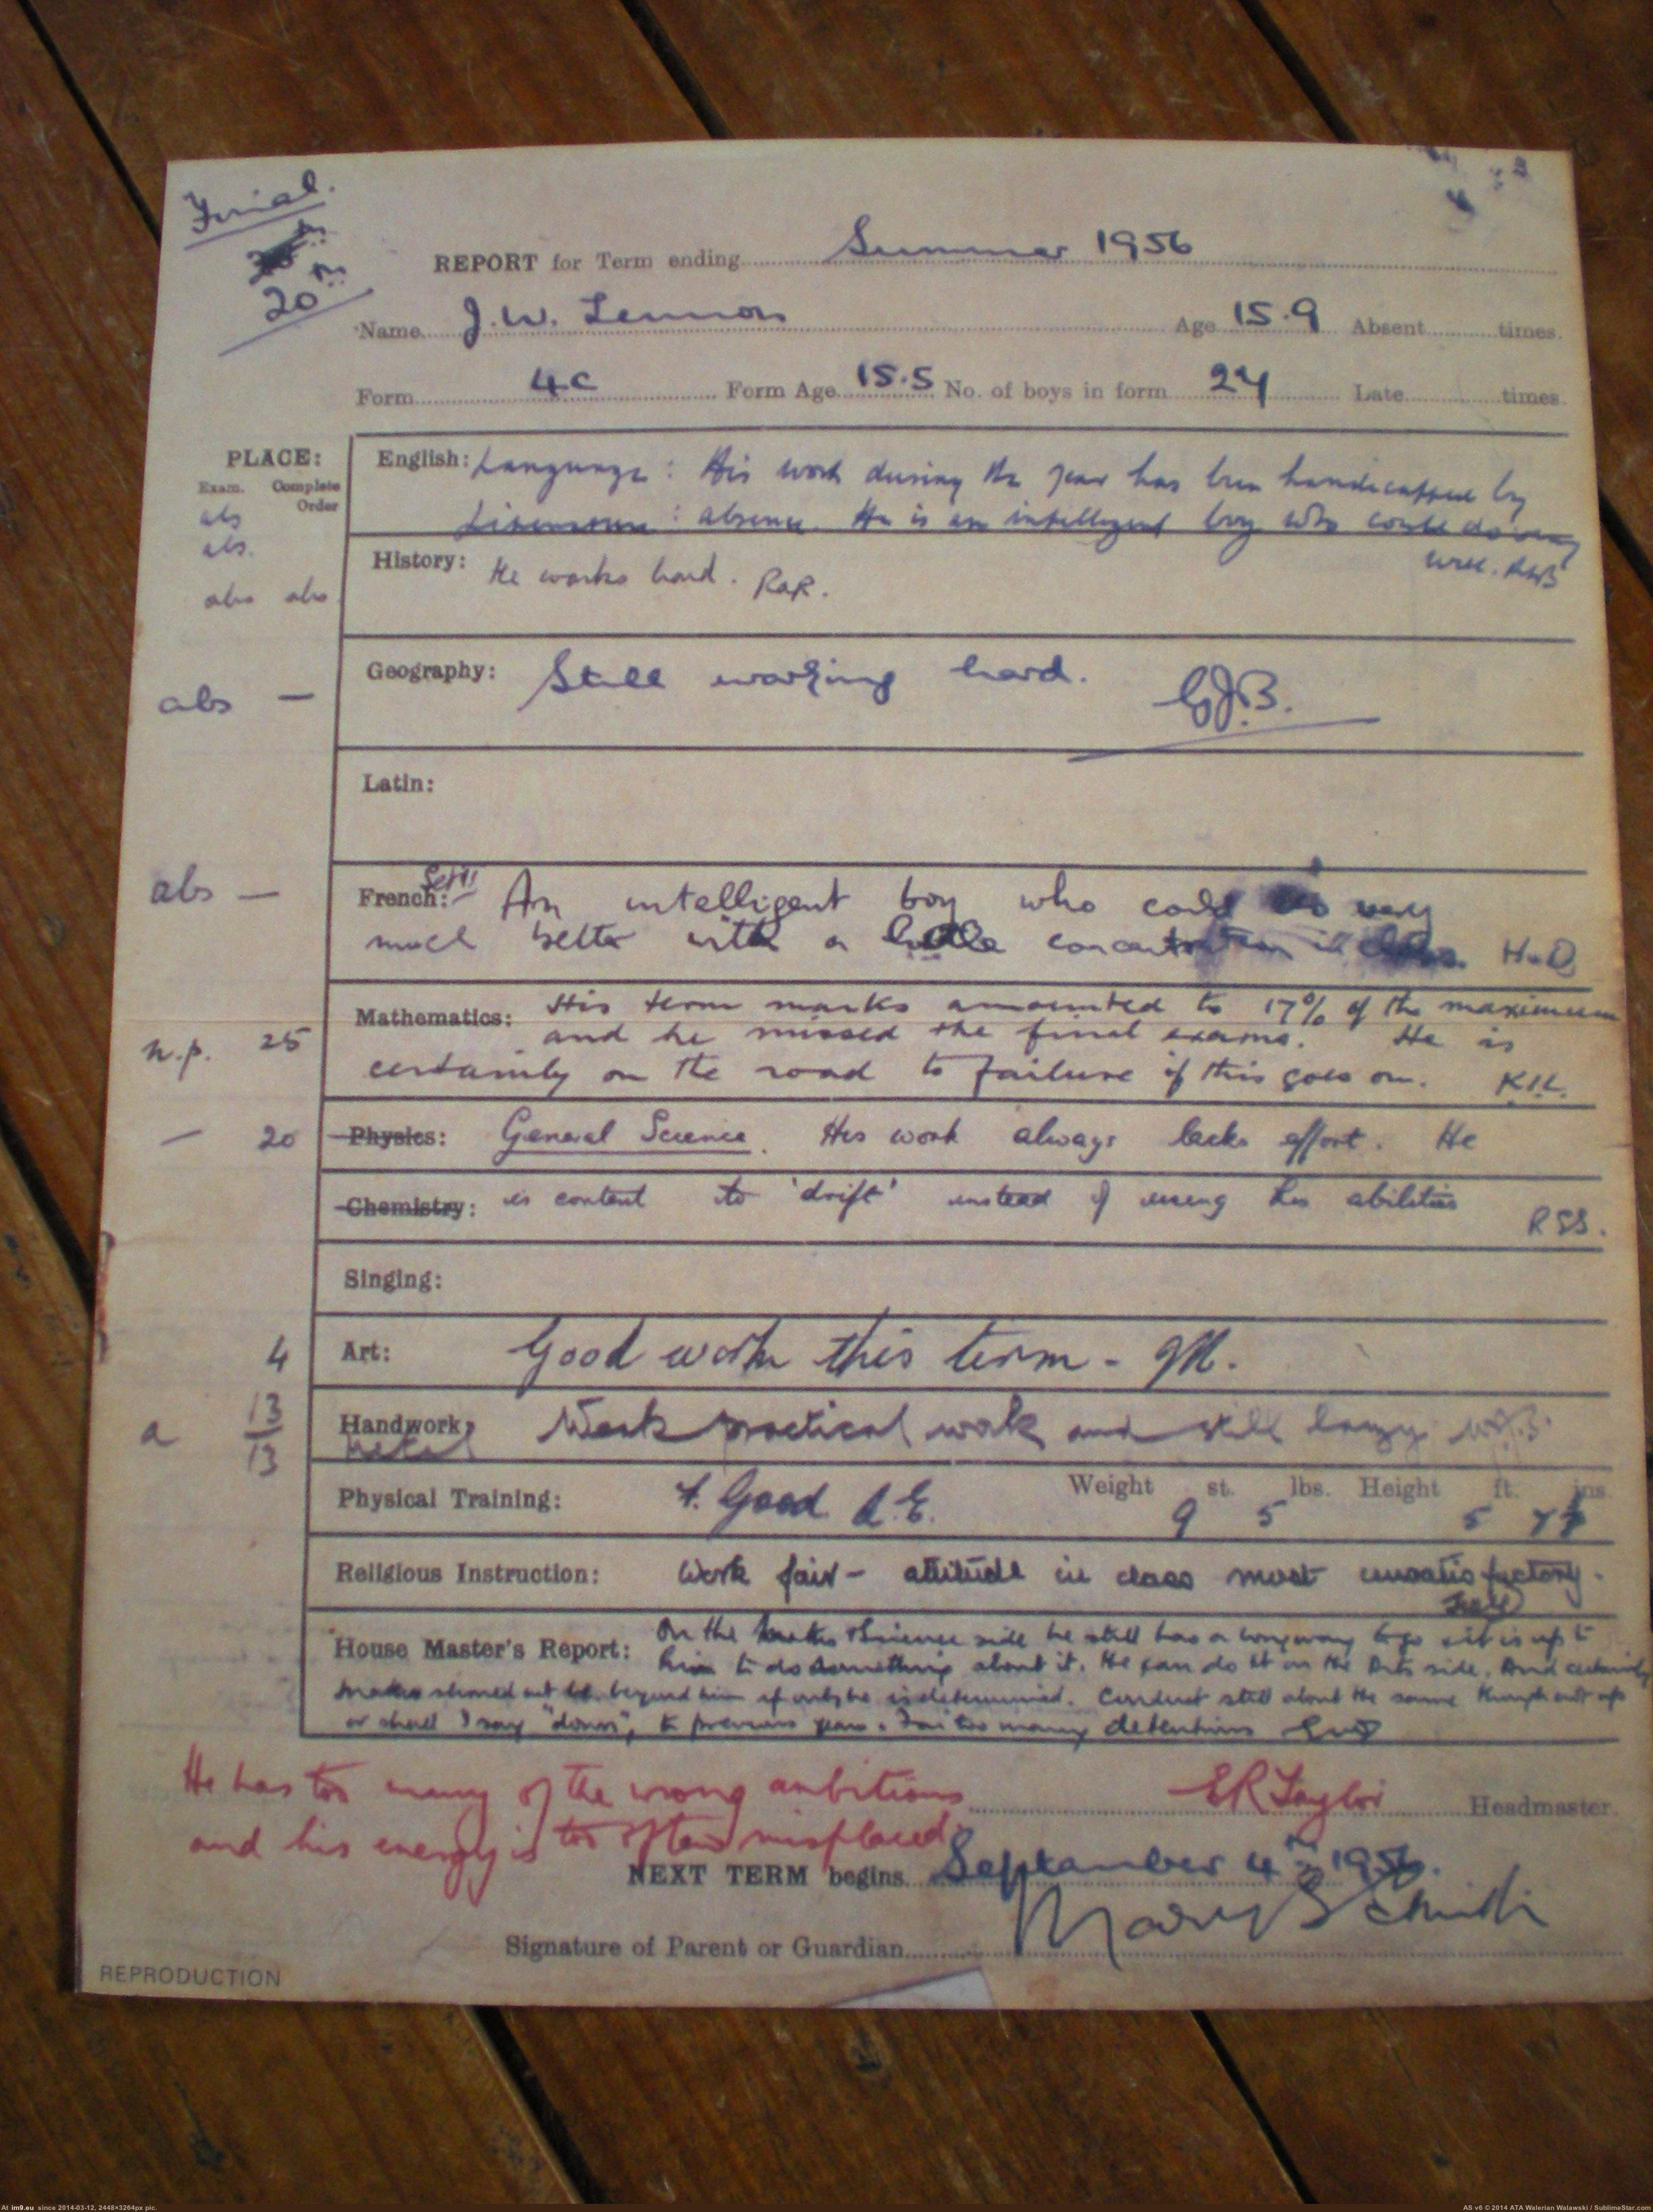 Final.
20
REPORT for Term ending Summer 1956
Name J. W. Lennon Age 15.9 Absent times.
Form 4C Form Age 15.5 No. of boys in form 24 Late times.
PLACE:
Exam. Complete Order
abs
abs.
abs abs
English: Language: His work during the year has been handicapped by
Literature: absence. He is an intelligent boy who could do very
well.
History: He works hard. RaR.
abs — Geography: Still working hard. GJB.
Latin:
abs — French: Set II An intelligent boy who could be very
much better with a little concentration in class.
n.p. 25 Mathematics: His term marks amounted to 17% of the maximum
and he missed the final exams. He is
certainly on the road to failure if this goes on.
— 20 Physics: General Science. His work always lacks effort. He
Chemistry: is content to 'drift' instead of using his abilities
RSS.
Singing:
4 Art: Good work this term -
a 13/13 Handwork: Weak practical work and still lazy
Metal
Physical Training: F. Good A.E. Weight 9 st. 5 lbs. Height 5 ft. 7½ ins.
Religious Instruction: Work fair - attitude in class most unsatisfactory.
House Master's Report: On the Maths & Science side he still has a long way to go & it is up to
him to do something about it. He can do it on the Arts side. And certainly
Maths should not be beyond him if only he is determined. Conduct still about the same though not up
or shall I say "down", to previous years. Far too many detentions
He has too many of the wrong ambitions ER Taylor Headmaster.
and his energy is too often misplaced.
NEXT TERM begins September 4th 1956.
Signature of Parent or Guardian Mary E Smith
REPRODUCTION
At im9.eu since 2014-03-12, 2448×3264px pic.
AS v6 © 2014 ATA Walerian Walawski / SublimeStar.com